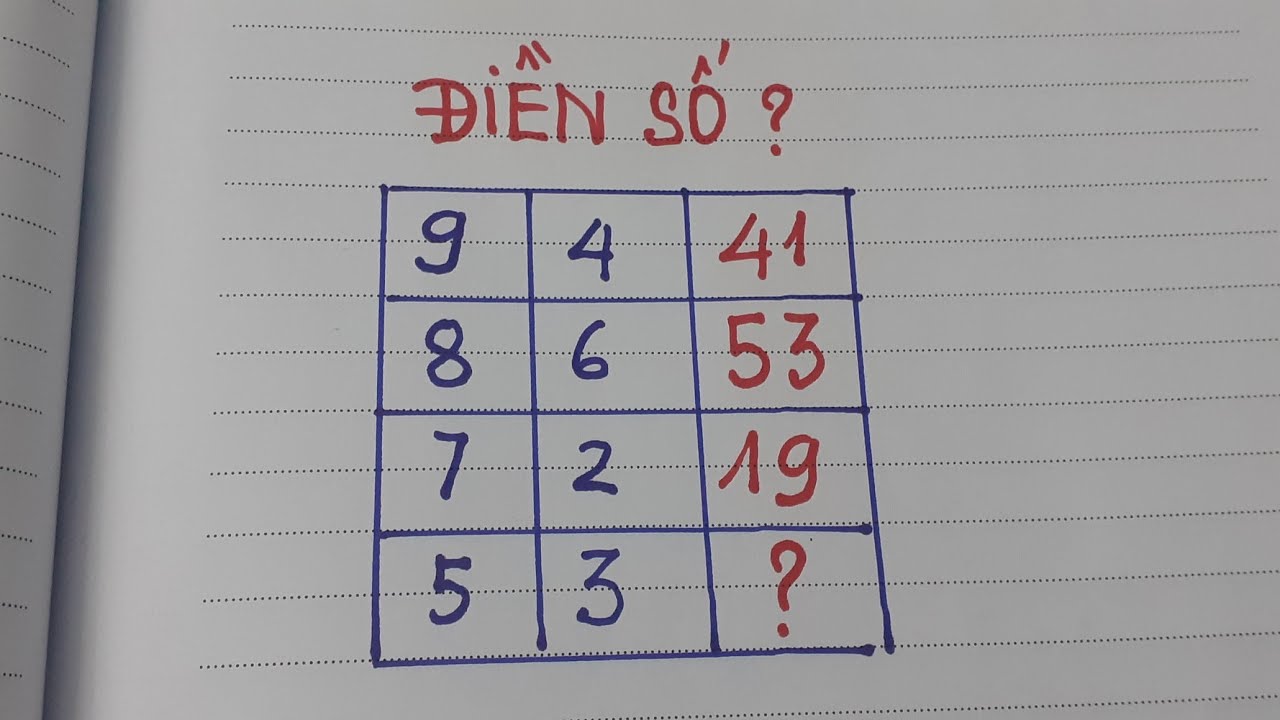 ĐiỀN SỐ ?
9 4 41
8 6 53
7 2 19
5 3 ?